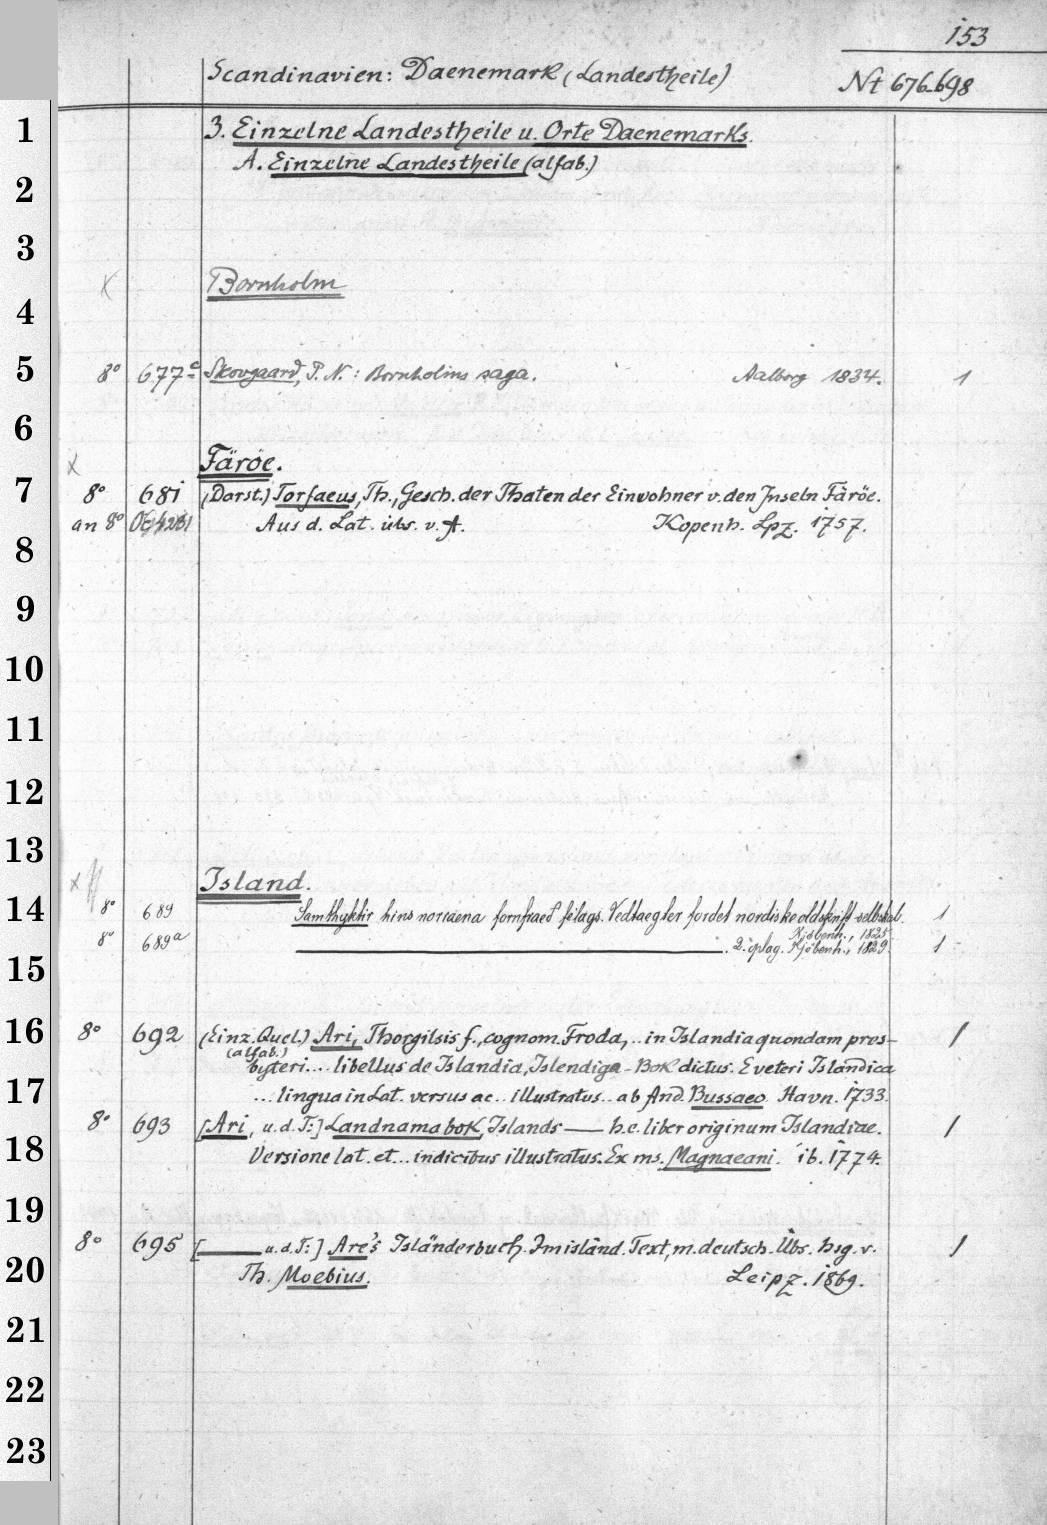 153
Scandinavien: Daenemark (Landestheile) Nt 676-698
1 3. Einzelne Landestheile u. Orte Daenemarks.
A. Einzelne Landestheile (alfab.)
2
3
x Bornholm
4
5 8° 677a Skovgaard, P. N.: Bornholms saga. Aalborg 1834. 1
6
x Färöe.
7 8° 681 (Darst.) Torfaeus, Th., Gesch. der Thaten der Einwohner v. den Inseln Färöe.
an 8° Aus d. Lat. übs. v. A. Kopenh. Lpz. 1757.
8
9
10
11
12
13
x Island.
14 8° 689 Samthyktir hins norraena fornfraeð felags. Vedtaegter for det nordiske oldskrift selbskab. 1
Kjöbenh., 1825
8° 689a . 2. oplag. Kjöbenh., 1829. 1
15
16 8° 692 (Einz. Quel.) Ari, Thorgilsis f., cognom. Froda, .. in Islandia quondam pres-
(alfab.)
byteri.... libellus de Islandia, Islendiga-Bok dictus. E veteri Islandica
17 ... lingua in Lat. versus ac.. illustratus.. ab And. Bussaeo. Havn. 1733. 1
8° 693 [Ari, u. d. T:] Landnamabok, Islands — h. e. liber originum Islandiae. 1
18 Versione lat. et... indicibus illustratus. Ex ms. Magnaeani. ib. 1774.
19
8° 695 [— u. d. T:] Are's Isländerbuch. Im isländ. Text, m. deutsch. Übs. hsg. v. 1
20 Th. Moebius. Leipz. 1869.
21
22
23